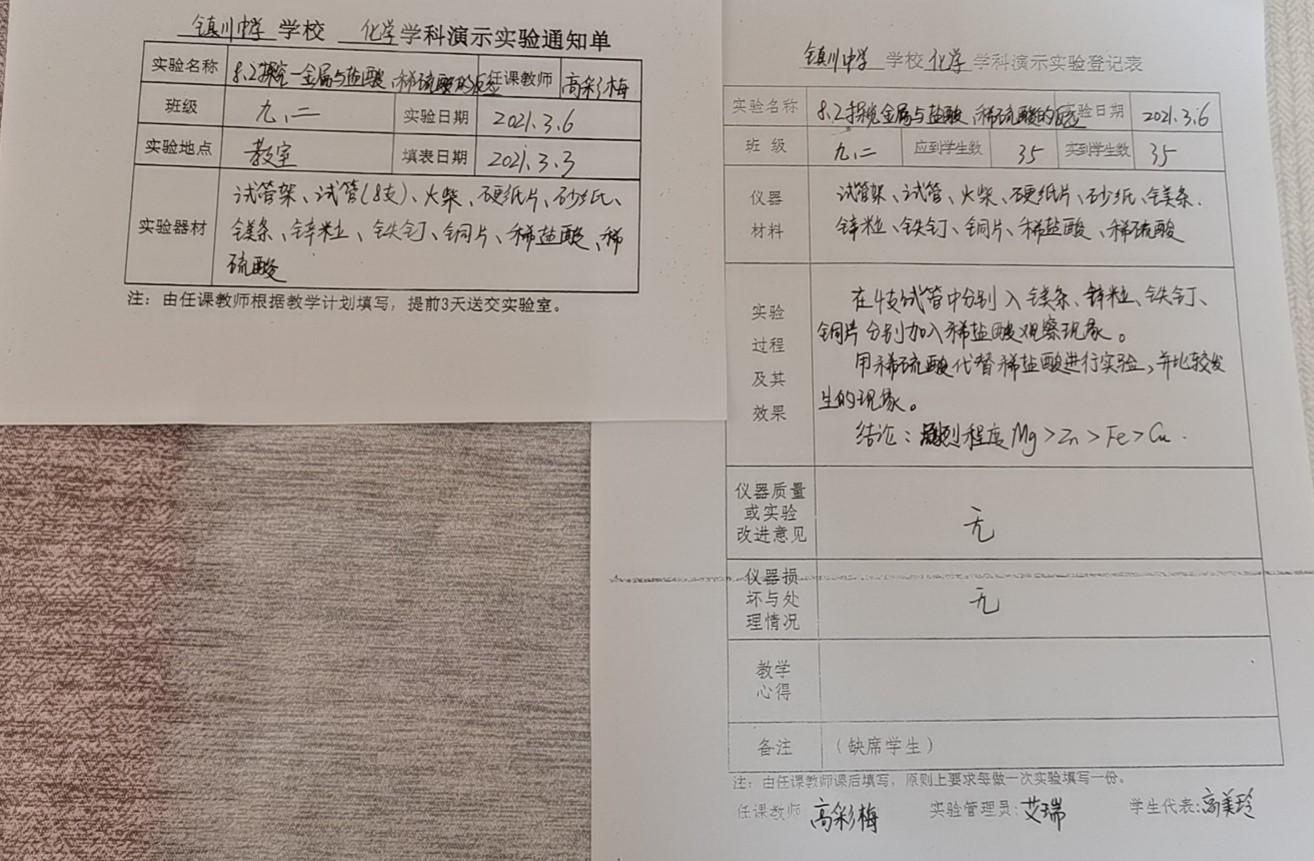 镇川中学 学校 化学 学科演示实验通知单
实验名称 8.2探究一金属与盐酸、稀硫酸的反应 任课教师 高彩梅
班级 九.二 实验日期 2021.3.6
实验地点 教室 填表日期 2021.3.3
实验器材 试管架、试管(8支)、火柴、硬纸片、砂纸、
镁条、锌粒、铁钉、铜片、稀盐酸、稀
硫酸
注：由任课教师根据教学计划填写，提前3天送交实验室。
镇川中学 学校 化学 学科演示实验登记表
实验名称 8.2探究金属与盐酸、稀硫酸的反应 实验日期 2021.3.6
班 级 九.二 应到学生数 35 实到学生数 35
仪器
材料
试管架、试管、火柴、硬纸片、砂纸、镁条.
锌粒、铁钉、铜片、稀盐酸、稀硫酸
实验
过程
及其
效果
在4支试管中分别入镁条、锌粒、铁钉、
铜片分别加入稀盐酸观察现象。
用稀硫酸代替稀盐酸进行实验,并比较发
生的现象。
结论：剧烈程度Mg>Zn>Fe>Cu.
仪器质量
或实验
改进意见
无
仪器损
坏与处
理情况
无
教学
心得
备注 (缺席学生)
注：由任课教师课后填写，原则上要求每做一次实验填写一份。
任课教师 高彩梅 实验管理员：艾瑞 学生代表：高美玲